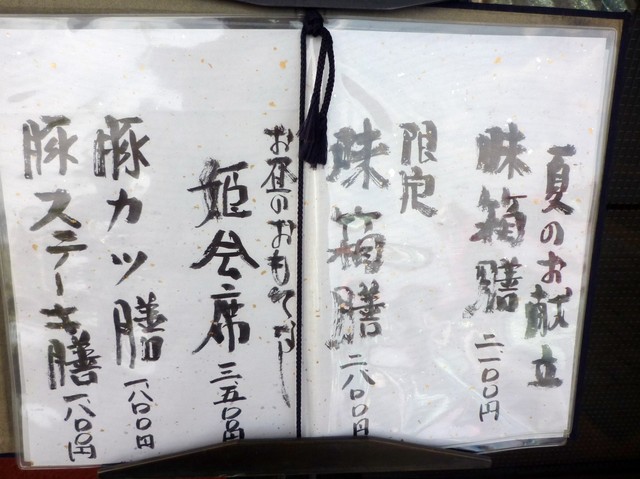 夏のお献立
味箱膳 二一〇〇円
限定
味箱膳 二八〇〇円
お昼のおもてなし
姫会席 三五〇〇円
豚カツ膳 一八〇〇円
豚ステーキ膳 一八〇〇円